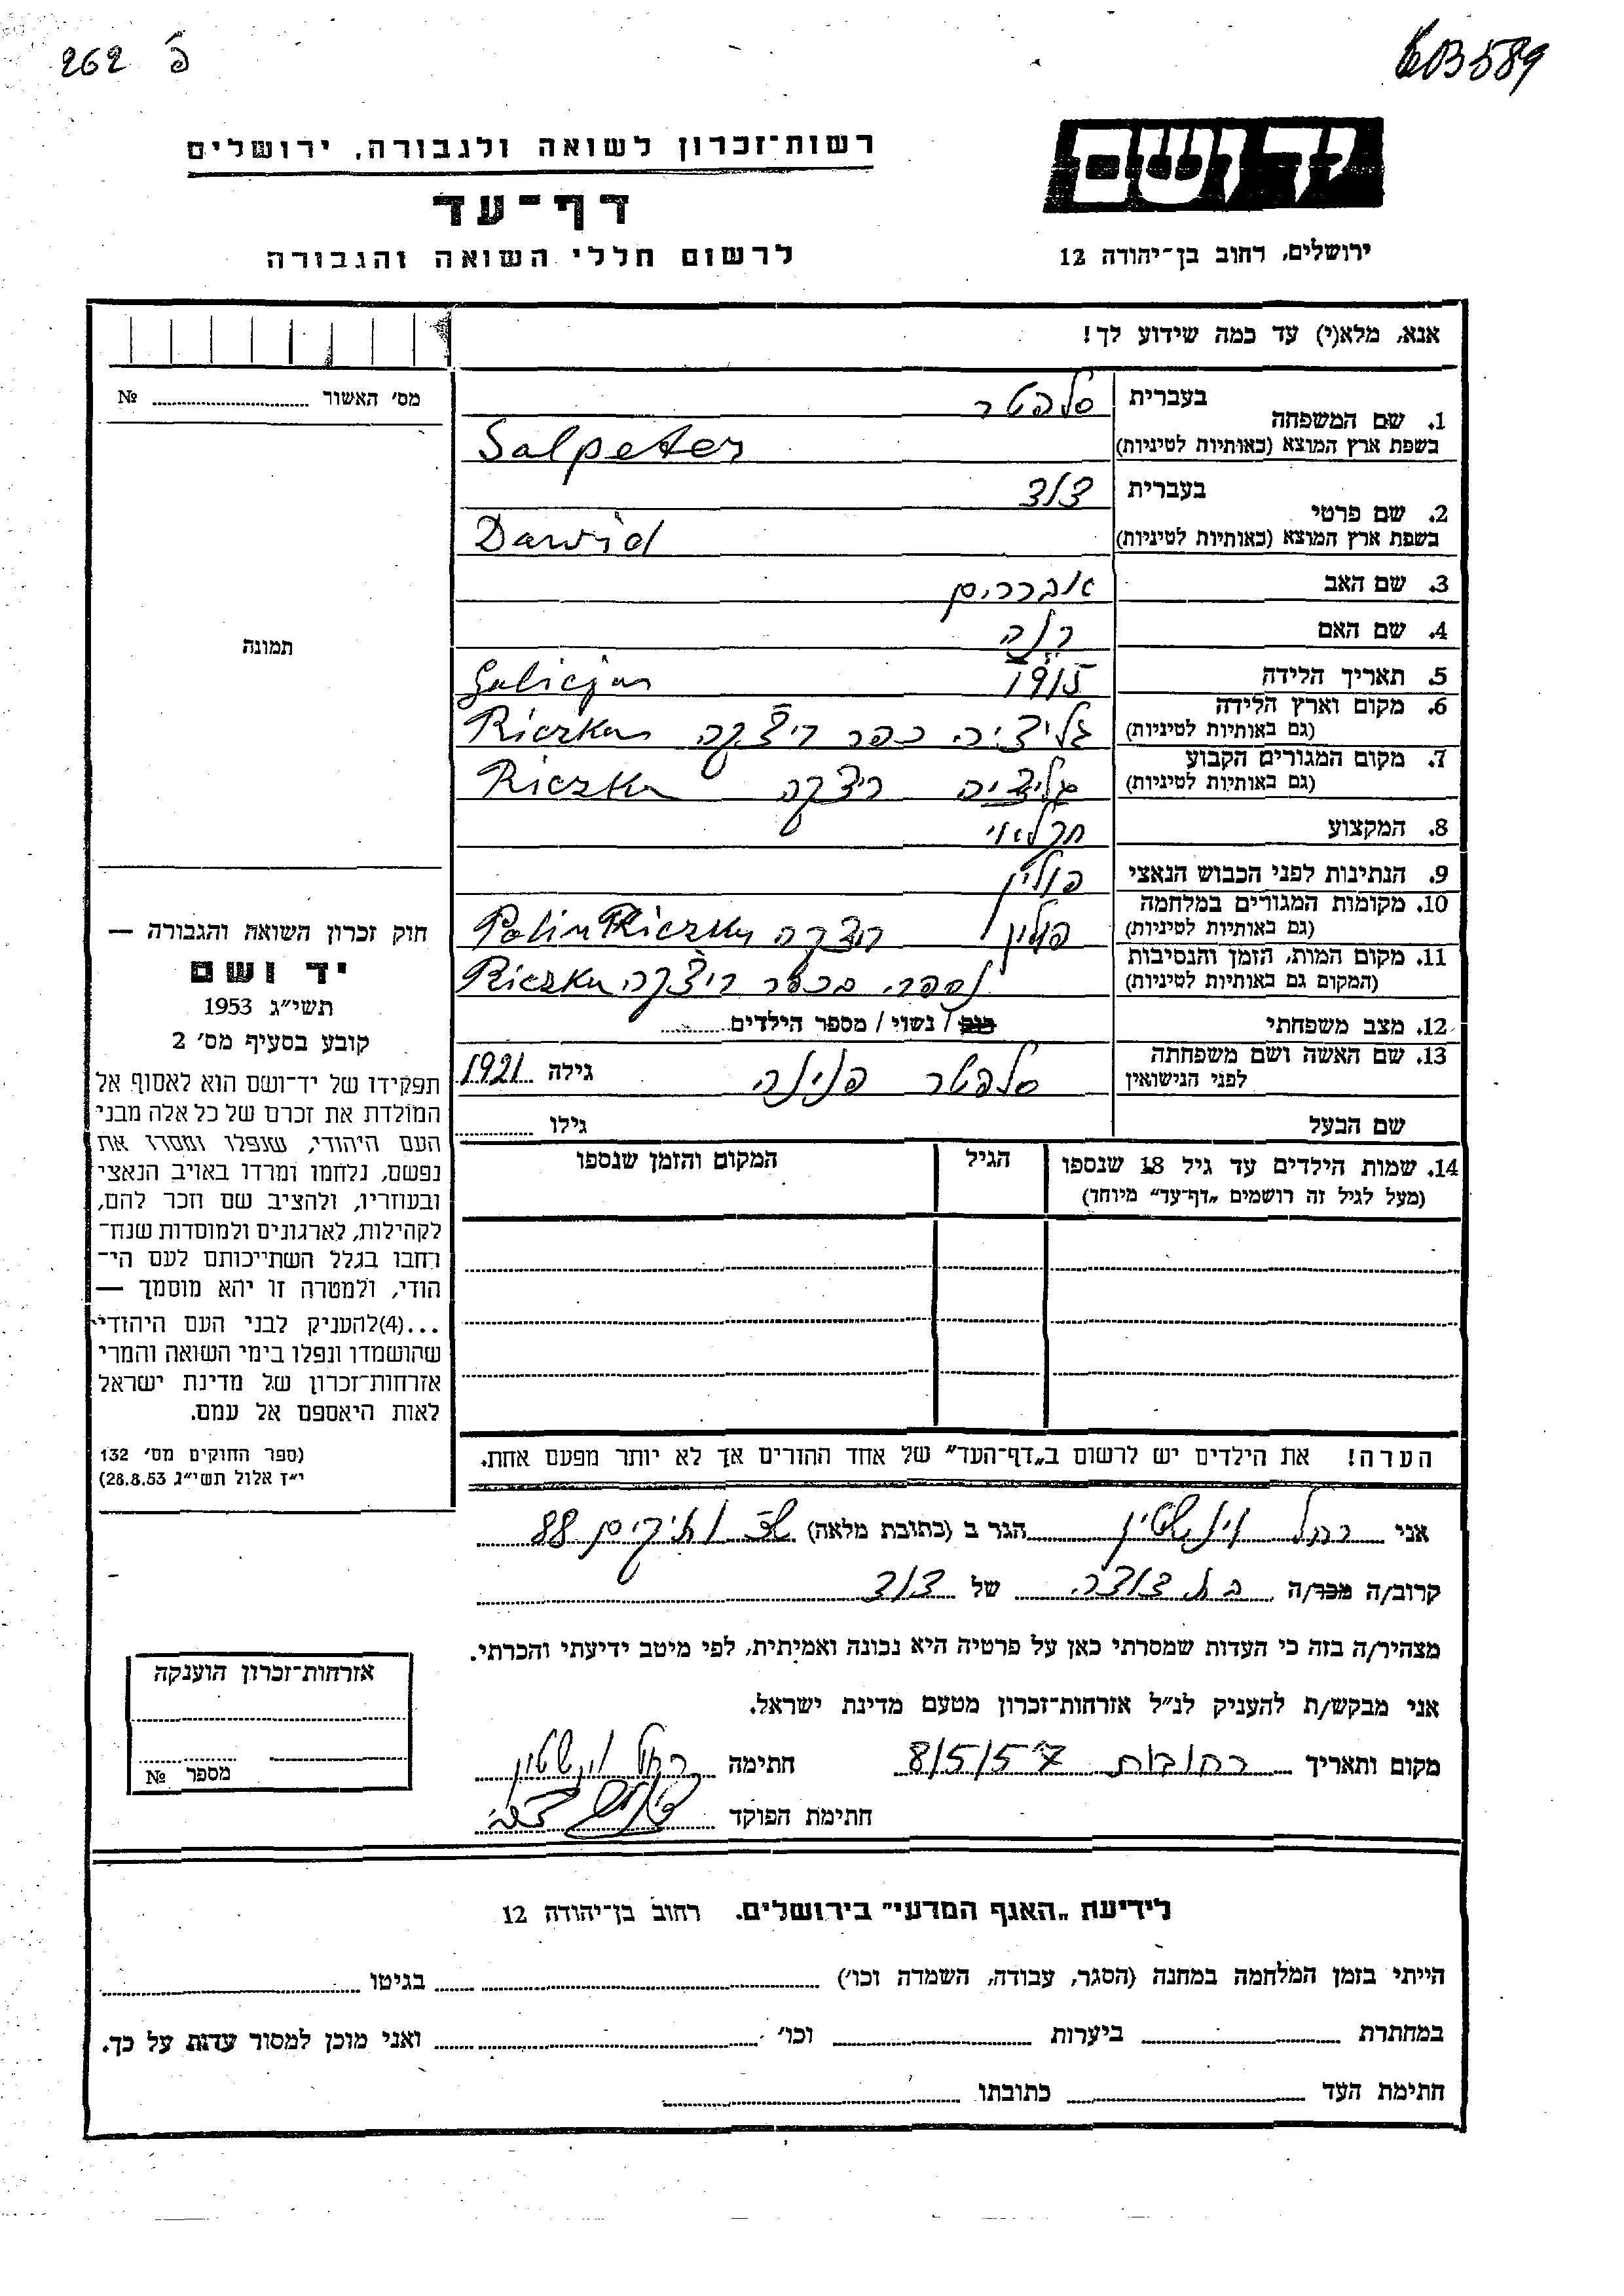 262 פ
603589
יד ושם
רשות־זכרון לשואה ולגבורה, ירושלים
דף־עד
לרשום חללי השואה והגבורה
ירושלים, רחוב בן־יהודה 12
אנא, מלא(י) עד כמה שידוע לך!
מס׳ האשור № 
תמונה
חוק זכרון השואה והגבורה —
יד ושם
תשי״ג 1953
קובע בסעיף מס׳ 2
תפקידו של יד־ושם הוא לאסוף אל
המולדת את זכרם של כל אלה מבני
העם היהודי, שנפלו ומסרו את
נפשם, נלחמו ומרדו באויב הנאצי
ובעוזריו, ולהציב שם וזכר להם,
לקהילות, לארגונים ולמוסדות שנח־
רחבו בגלל השתייכותם לעם הי־
הודי, ולמטרה זו יהא מוסמך —
...(4) להעניק לבני העם היהודי
שהושמדו ונפלו בימי השואה והמרי
אזרחות־זכרון של מדינת ישראל
לאות היאספם אל עמם.
(ספר החוקים מס׳ 132
י״ז אלול תשי״ג 28.8.53)
1. שם המשפחה בעברית סלפטר
בשפת ארץ המוצא (באותיות לטיניות) Salpeter
2. שם פרטי בעברית דוד
בשפת ארץ המוצא (באותיות לטיניות) Dawid
3. שם האב אברהם
4. שם האם
5. תאריך הלידה 1915 Galicja
6. מקום וארץ הלידה (גם באותיות לטיניות) גליציה כפר ריצקה Riczka
7. מקום המגורים הקבוע (גם באותיות לטיניות) גליציה ריצקה Riczka
8. המקצוע חקלאי
9. הנתינות לפני הכבוש הנאצי פולין
10. מקומות המגורים במלחמה (גם באותיות לטיניות) פולין ריצקה Polin Riczka
11. מקום המות, הזמן והנסיבות (המקום גם באותיות לטיניות) נספה בכפר ריצקה Riczka
12. מצב משפחתי רוק / נשוי / מספר הילדים
13. שם האשה ושם משפחתה לפני הנישואין סלפטר פנינה גילה 1921
שם הבעל גילו
14. שמות הילדים עד גיל 18 שנספו הגיל המקום והזמן שנספו
(מעל לגיל זה רושמים „דף־עד״ מיוחד)
הערה! את הילדים יש לרשום ב„דף־העד״ של אחד ההורים אך לא יותר מפעם אחת.
אני רחל וינשטין הגר ב (כתובת מלאה) 88
קרוב/ה מכר/ה בת דודה של דוד
מצהיר/ה בזה כי העדות שמסרתי כאן על פרטיה היא נכונה ואמיתית, לפי מיטב ידיעתי והכרתי.
אני מבקש/ת להעניק לנ״ל אזרחות־זכרון מטעם מדינת ישראל.
מקום ותאריך רחובות 8/5/57 חתימה רחל וינשטין
חתימת הפוקד
אזרחות־זכרון הוענקה
מספר №
לידיעת „האגף המדעי״ בירושלים. רחוב בן־יהודה 12
הייתי בזמן המלחמה במחנה (הסגר, עבודה, השמדה וכו׳) בגיטו
במחתרת ביערות וכו׳ ואני מוכן למסור עדות על כך.
חתימת העד כתובתו